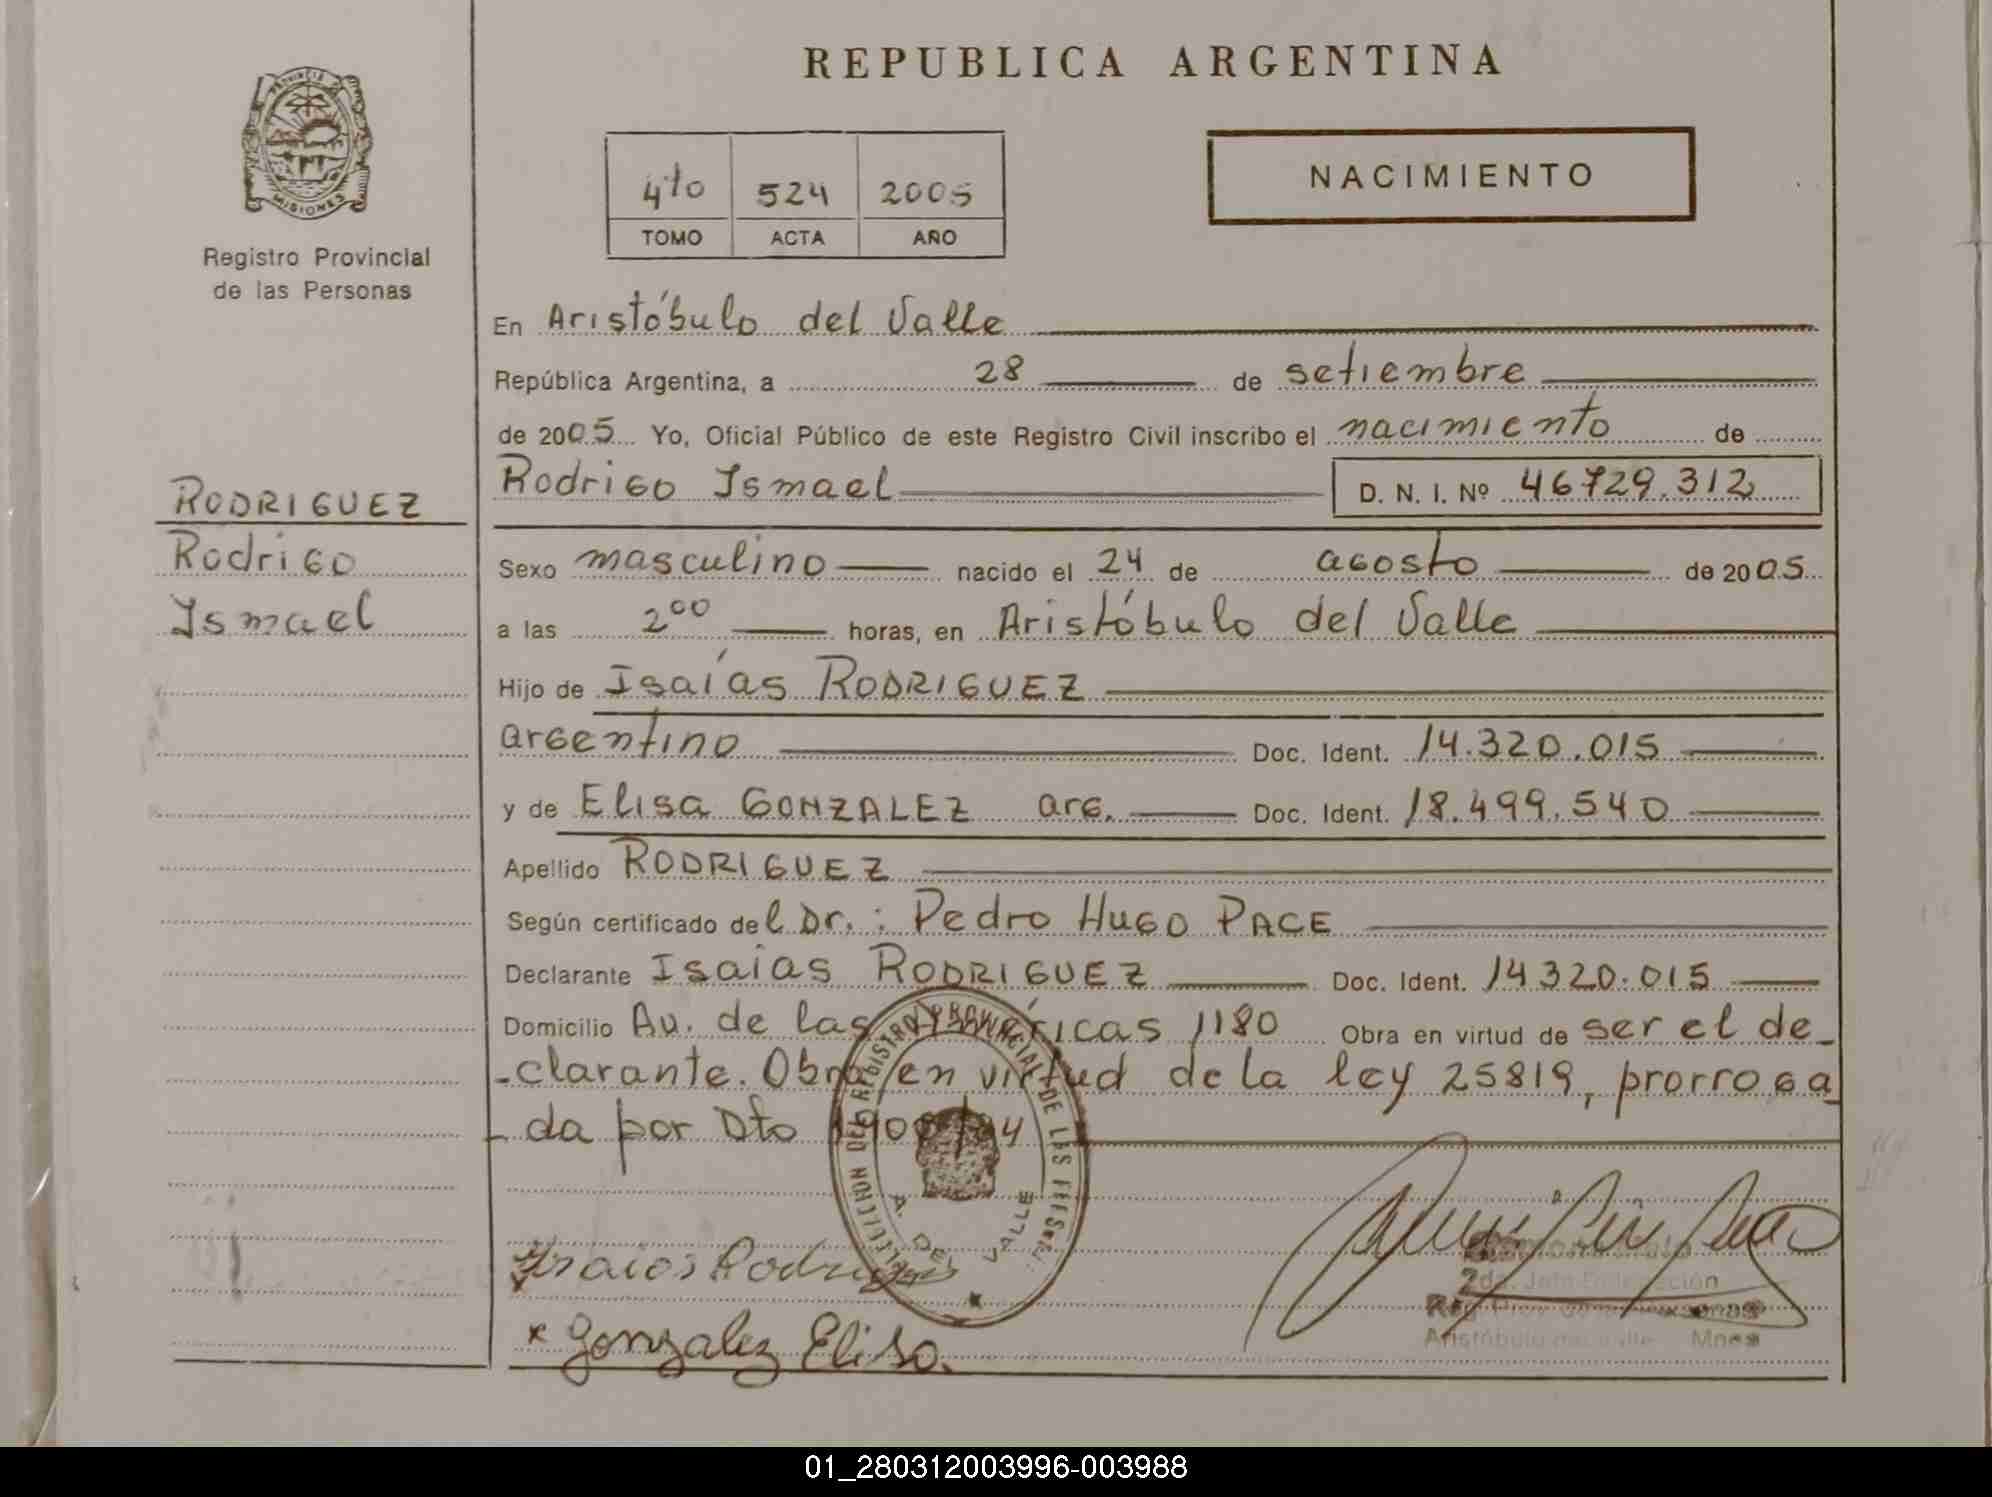 REPUBLICA ARGENTINA
PROVINCIA DE
MISIONES
Registro Provincial
de las Personas
4to 524 2005
TOMO ACTA AÑO
NACIMIENTO
En Aristóbulo del Valle
República Argentina, a 28 de setiembre
de 2005 Yo, Oficial Público de este Registro Civil inscribo el nacimiento de
Rodrigo Ismael D. N. I. Nº 46729.312
RODRIGUEZ
Rodrigo
Ismael
Sexo masculino nacido el 24 de agosto de 2005
a las 2⁰⁰ horas, en Aristóbulo del Valle
Hijo de Isaías RODRIGUEZ
argentino Doc. Ident. 14.320.015
y de Elisa GONZALEZ arg. Doc. Ident. 18.499.540
Apellido RODRIGUEZ
Según certificado del Dr.: Pedro Hugo PACE
Declarante Isaías RODRIGUEZ Doc. Ident. 14320.015
Domicilio Av. de las Américas 1180 Obra en virtud de ser el de_
-clarante. Obra en virtud de la ley 25819, prorroga_
_da por Dto
DELEGACION DEL REGISTRO PROVINCIAL DE LAS PERSONAS
A. DEL VALLE
Isaias Rodriguez
x Gonzalez Elisa.
2da. Jefa Delegación
Reg. Prov. de las Personas
Aristóbulo del Valle Mnes
01_280312003996-003988